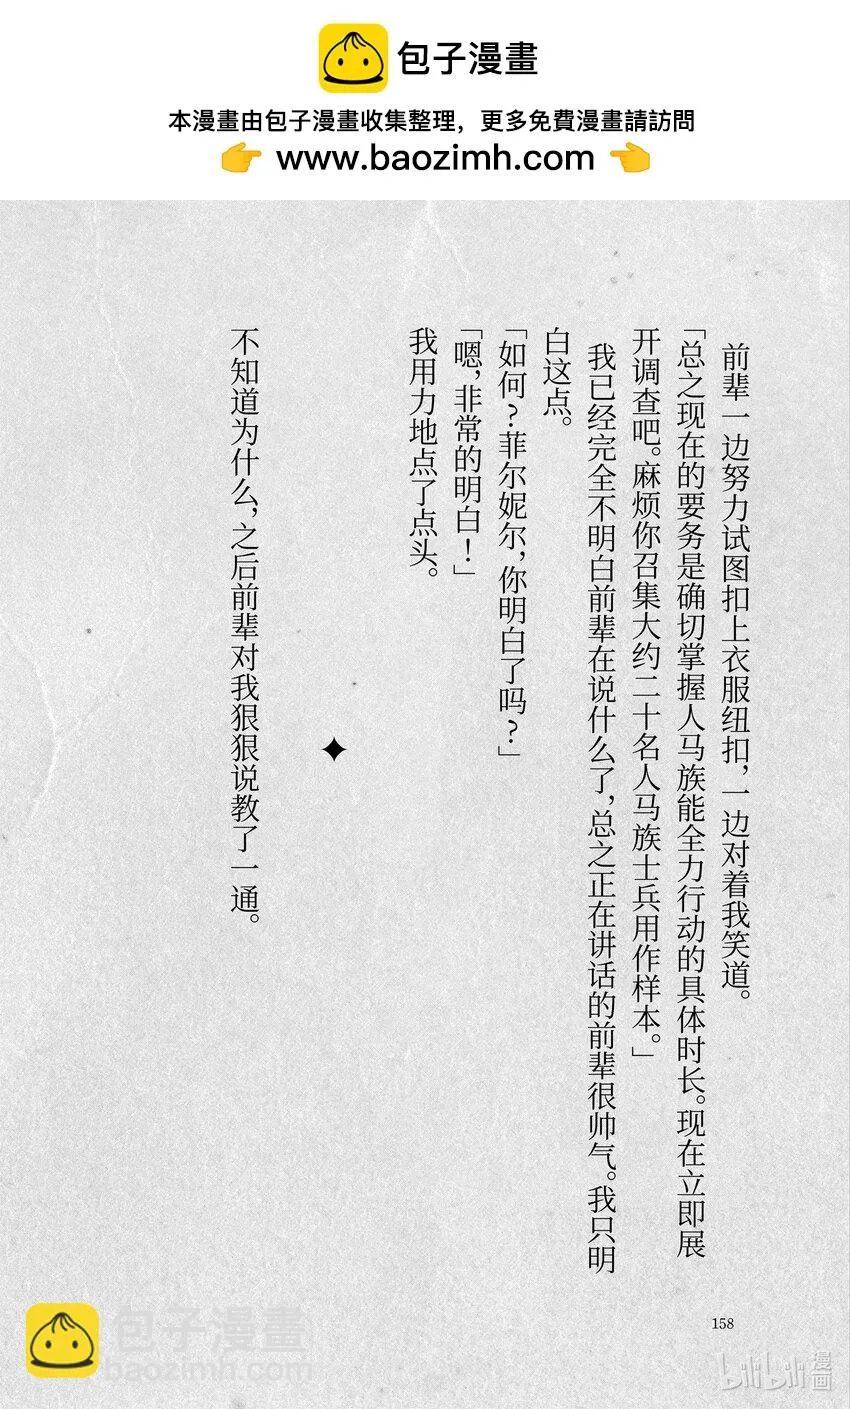 包子漫畫
本漫畫由包子漫畫收集整理，更多免費漫畫請訪問
👉 www.baozimh.com 👈
前辈一边努力试图扣上衣服纽扣，一边对着我笑道。
「总之现在的要务是确切掌握人马族能全力行动的具体时长。现在立即展
开调查吧。麻烦你召集大约二十名人马族士兵用作样本。」
我已经完全不明白前辈在说什么了，总之正在讲话的前辈很帅气。我只明
白这点。
「如何？菲尔妮尔，你明白了吗？」
「嗯，非常的明白！」
我用力地点了点头。
✦
不知道为什么，之后前辈对我狠狠说教了一通。
158
包子漫畫
baozimh.com
bilibili漫画